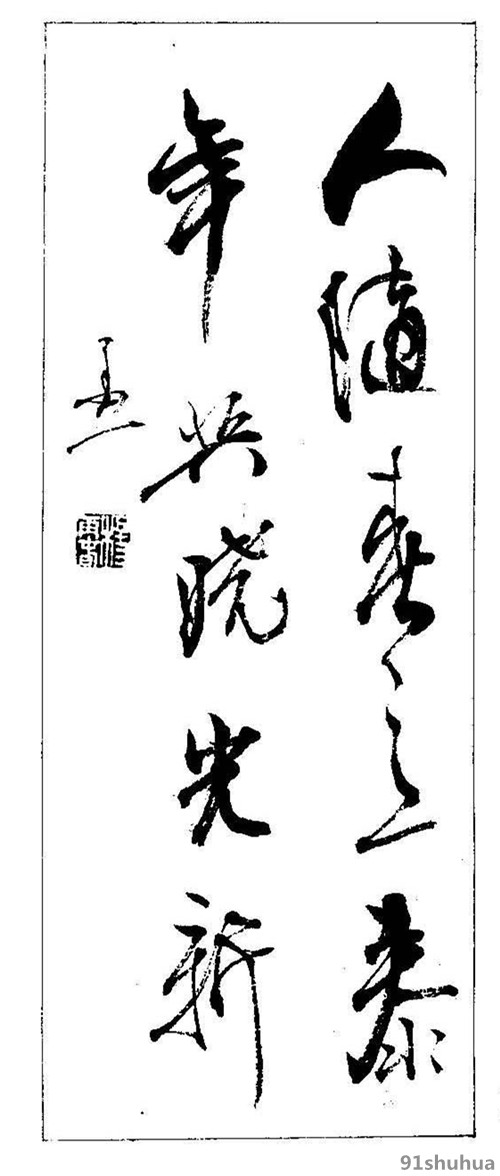 人随春意泰
年共晓光新
91shuhua